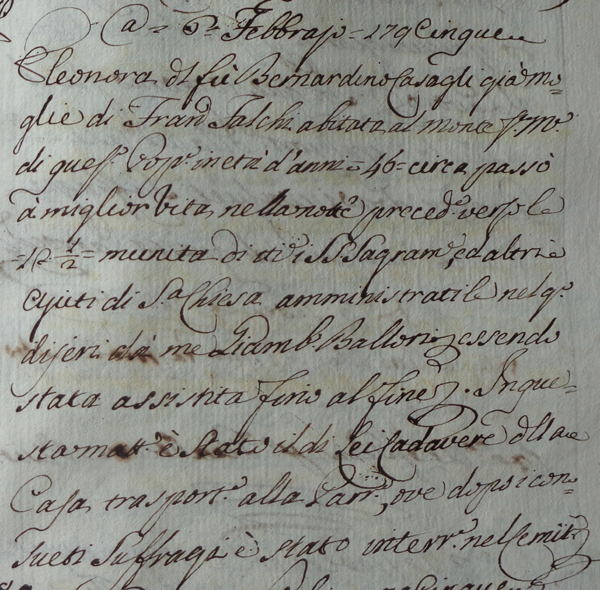 A = 6 = Febbrajo = 179Cinque
Eleonora dl fù Bernardino Casagli già mo=
glie di Fran.co Taschi abitata al Monte
di quest. Pop. in età d'anni = 46 = circa passò
à miglior Vita nella notte preced.e verso le
= 12 1/2 = munita di tt.i i SS. Sagram.i, ed altri
ajuti di S.a Chiesa amministratile nel q.
di jeri dà me Giamb. Ballorini essendo
stata assistita fino al fine. In que=
sta matt.a è stato il di Lei Cadavere dlla
Casa trasport.o alla Parr.a, ove dopo i con=
sueti Suffragi è stato interr.o nel Cemit.